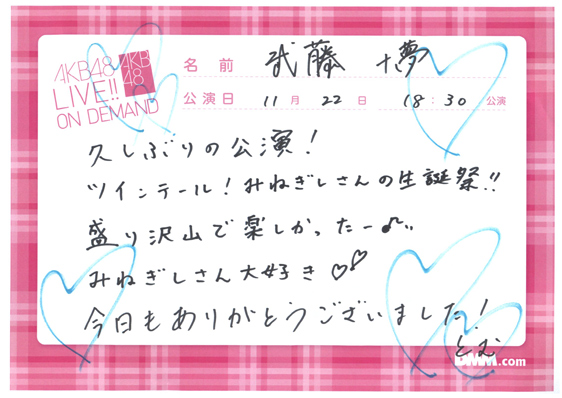 AKB48
LIVE!!
ON DEMAND
AKB
48
名前 武藤 十夢
公演日 11月 22日 18:30 公演
久しぶりの公演!
ツインテール!みねぎしさんの生誕祭!!
盛り沢山で楽しかったー♪
みねぎしさん大好き♡♡
今日もありがとうございました!
とむ
DMM.com